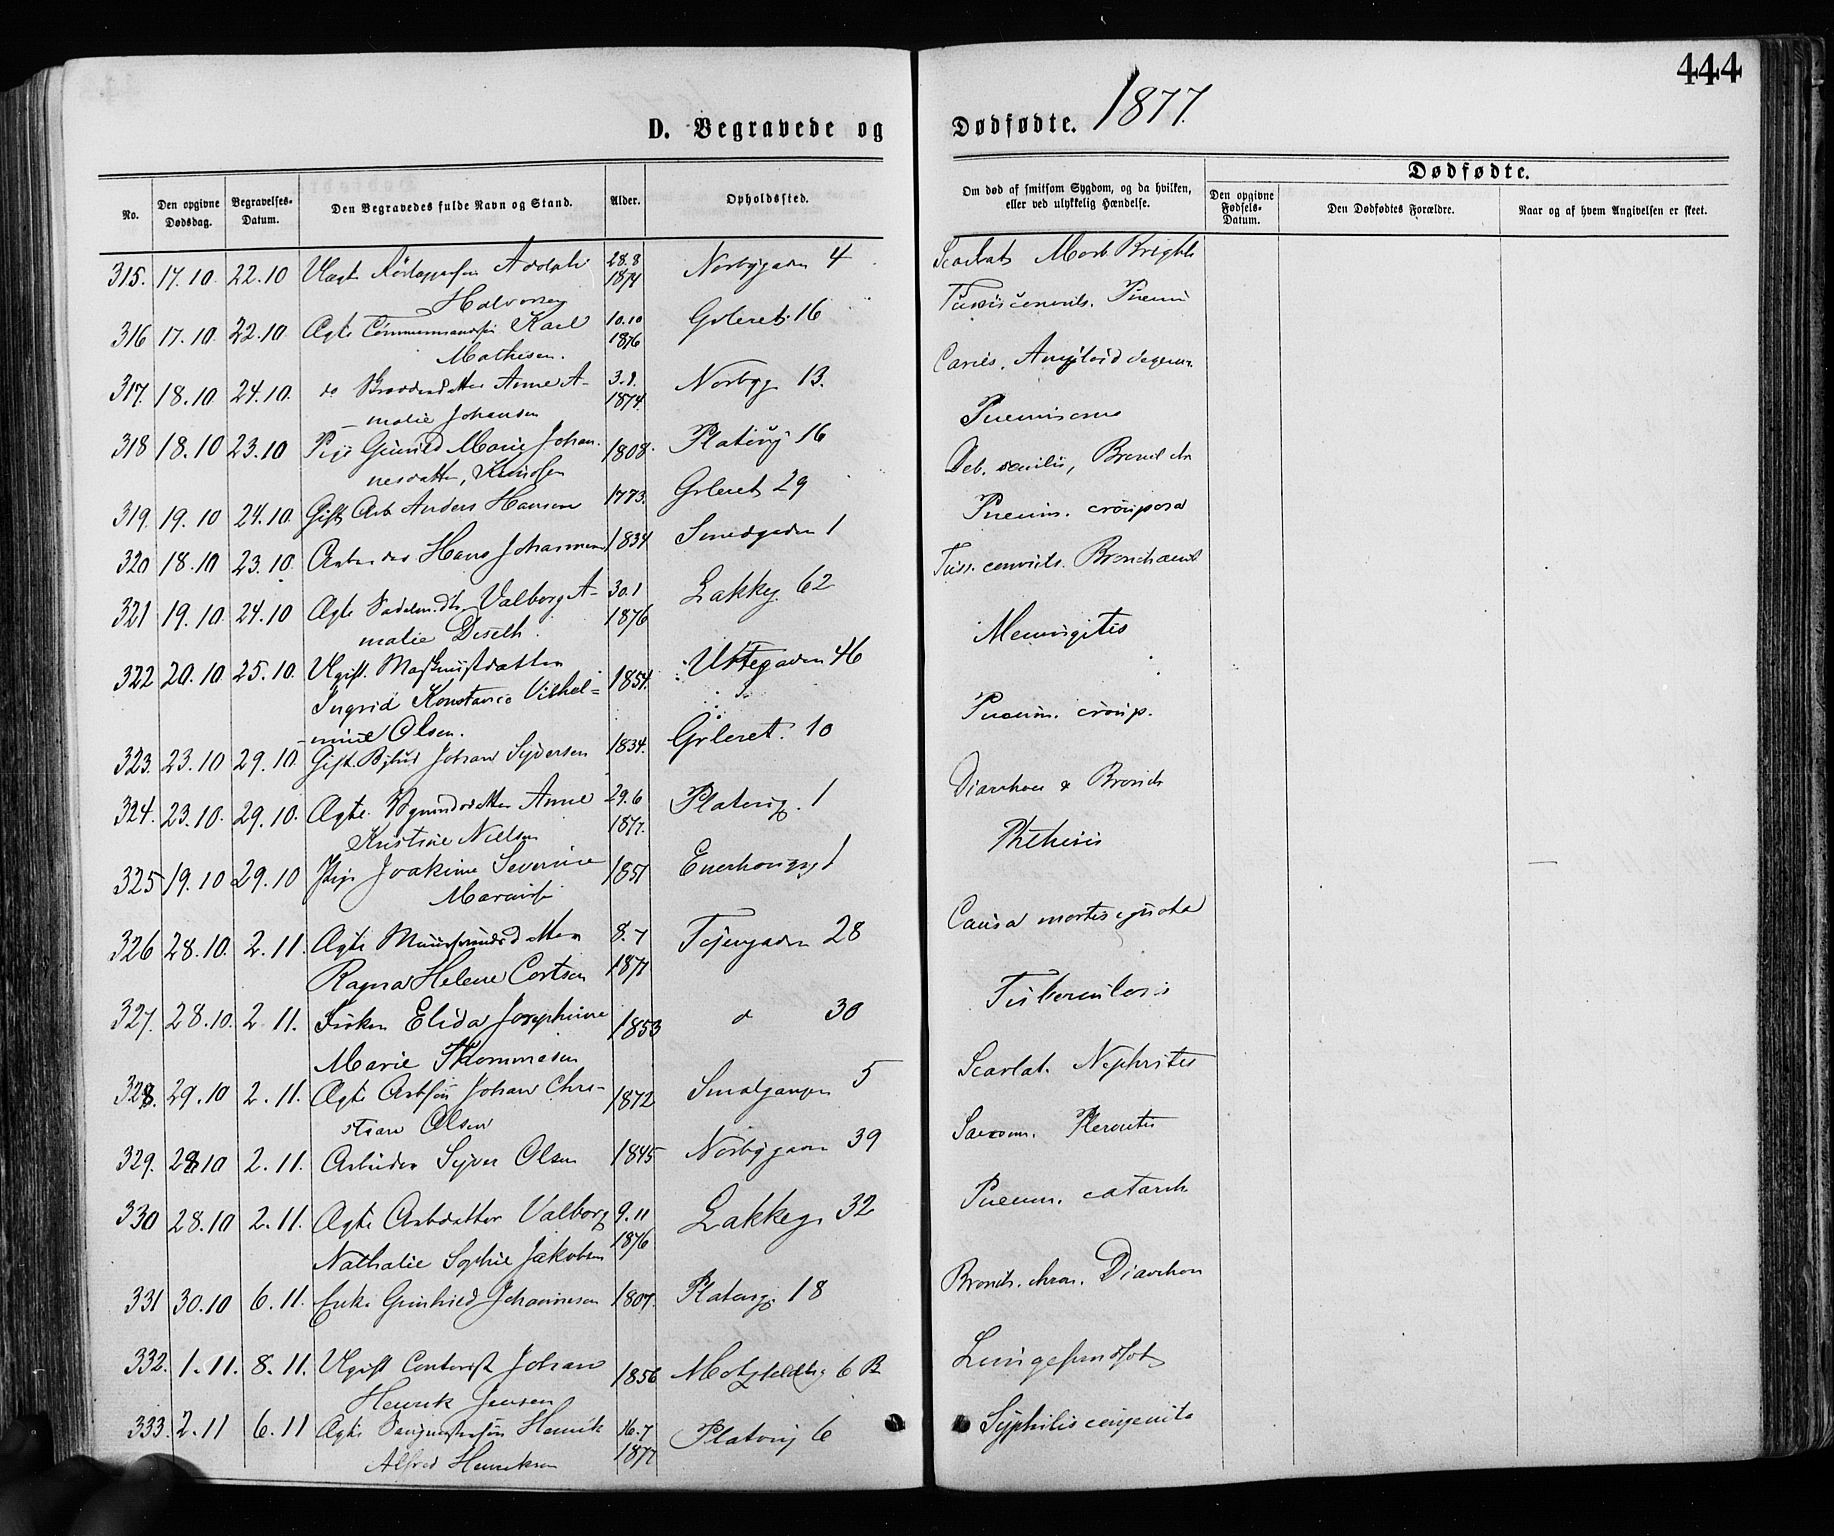 444
D. Begravede og Dødfødte. 1877.
No. Den opgivne Dødsdag. Begravelses-Datum. Den Begravedes fulde Navn og Stand. Alder. Opholdssted. Om død af smitsom Sygdom, og da hvilken, eller ved ulykkelig Hændelse. Dødfødte.
Den opgivne Fødsels-Datum. Den Dødfødtes Forældre. Naar og af hvem Angivelsen er skeet.
315. 17.10 22.10 Adolph 28.8 1874 Norbygaden 4 Scarlat. Morb. Brightii
Halvorsen
316 17.10 22.10 Ægte Karl 10.10 1876 Grleret. 16 Tussis convuls. Pneum
Mathisen.
317. 18.10 24.10. do Anne A- 3. 1874. Norbyg. 13. Caries. Amyloid degener.
-malie Johansen
318 18.10 23.10 Pige Gunild Marie Johan- 1808. Platoug 16
nesdatter, Knudsen
319. 19.10 24.10. Gift Arb. Anders Hansen 1773. Grleret 29 Deb. senilis, Bronch
320 18.10 23.10. Arbeider Hans Johannesen 1834 Smedgaden 1 Pneum. crouposa
321 19.10 24.10 Ægte Valborg A- 30.1 1876 Lakkeg. 62 Tuss. convuls.
malie Diseth.
322 20.10 25.10. Ugift. Maskinistdatter 1854. Urtegaden 46 Meningitis
Ingrid Konstance Vilhel-
-mine Olsen.
323. 23.10 29.10. Gift. Bybud Johan Syversen 1834. Grleret. 10 Pneum. croup.
324. 23.10. 29.10. Ægte Anne 29.6 1877. Platoug. 1 Diarrhoea & Bronch
Kristine Nielsen
325 19.10 29.10 Pige Joakime Severine 1851 Enerhougsg 1 Phthisis
326 28.10. 2.11. Ægte Muursvendsdatter 8.7 1877 Tøiengaden 28 Causa mortis ignota
Ragna Helene Cortsen
327. 28.10. 2.11. Frøken Elida Josephine 1853 do 30 Tuberculosis
Marie Thommesen
328. 29.10 2.11. Ægte Arbsøn Johan Chri- 1872 Smalgangen 5 Scarlat. Nephritis
stian Olsen
329. 28.10 2.11. Arbeider Syver Olsen 1845 Norbygaden 39 Sarcom. Pleuritis
330 28.10 2.11. Ægte Arbdatter Valborg 9.11 1876 Lakkeg. 32 Pneum. catarrh
Nathalie Sophie Jakobsen
331 30.10 6.11. Enke Gunhild Johannesen 1807. Platoug. 18 Bronch. chron. Diarrhoea
332. 1.11. 8.11. Ugift Contorist Johan 1856 Motzfeldtsg 6 B Lungesvindsot
Henrik Jensen
333. 2.11 6.11 Ægte Henrik 16.7 1877 Platoug 6 Syphilis congenita
Alfred Henriksen